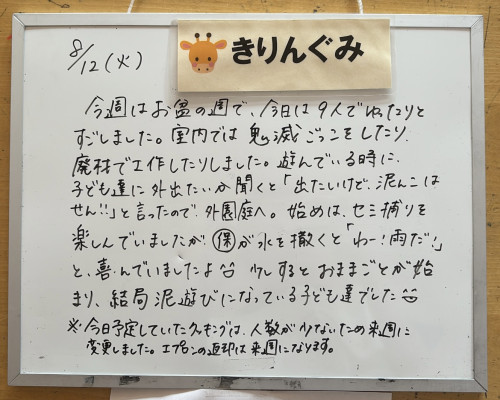 きりんぐみ
8/12(火)
今週はお盆の週で、今日は9人でゆったりと
すごしました。室内では鬼滅ごっこをしたり、
廃材で工作したりしました。遊んでいる時に、
子ども達に外出たいか聞くと「出たいけど、泥んこは
せん!!」と言ったので、外園庭へ。始めは、セミ捕りを
楽しんでいましたが、㋭が水を撒くと「わー!雨だ!」
と、喜んでいましたよ☺ 少しするとおままごとが始
まり、結局泥遊びになっている子ども達でした☺
※今日予定していたクッキングは、人数が少ないため来週に
変更しました。エプロンの返却は来週になります。